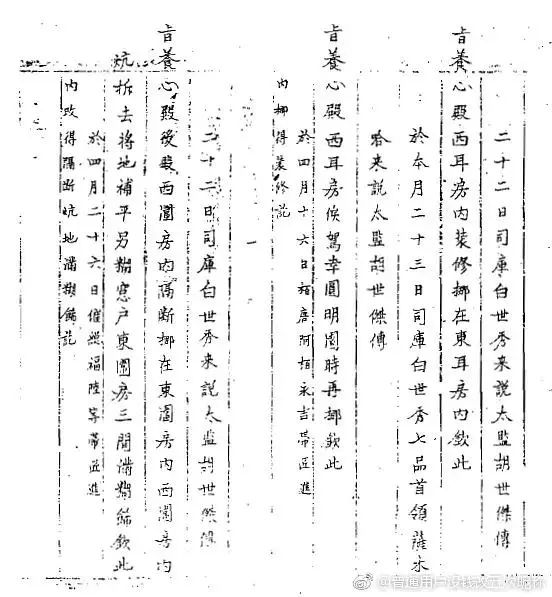 二十二日司庫白世秀来說太監胡世傑傳
旨養心殿西耳房内裝修挪在東耳房内欽此
於本月二十三日司庫白世秀七品首領薩木
哈来說太監胡世傑傳
旨養心殿西耳房候駕幸圓明園時再挪欽此
於四月十六日栢唐阿栢永吉帶匠進
内挪得裝修訖
二十二日司庫白世秀来說太監胡世傑傳
旨養心殿後殿西圍房内隔斷挪在東圍房内西圍房内
炕拆去將地補平另糊窓户東圍房三間滿糊餙欽此
於四月二十六日催總福陸等帶匠進
内改得隔斷炕地滿糊餙訖
@普通用户